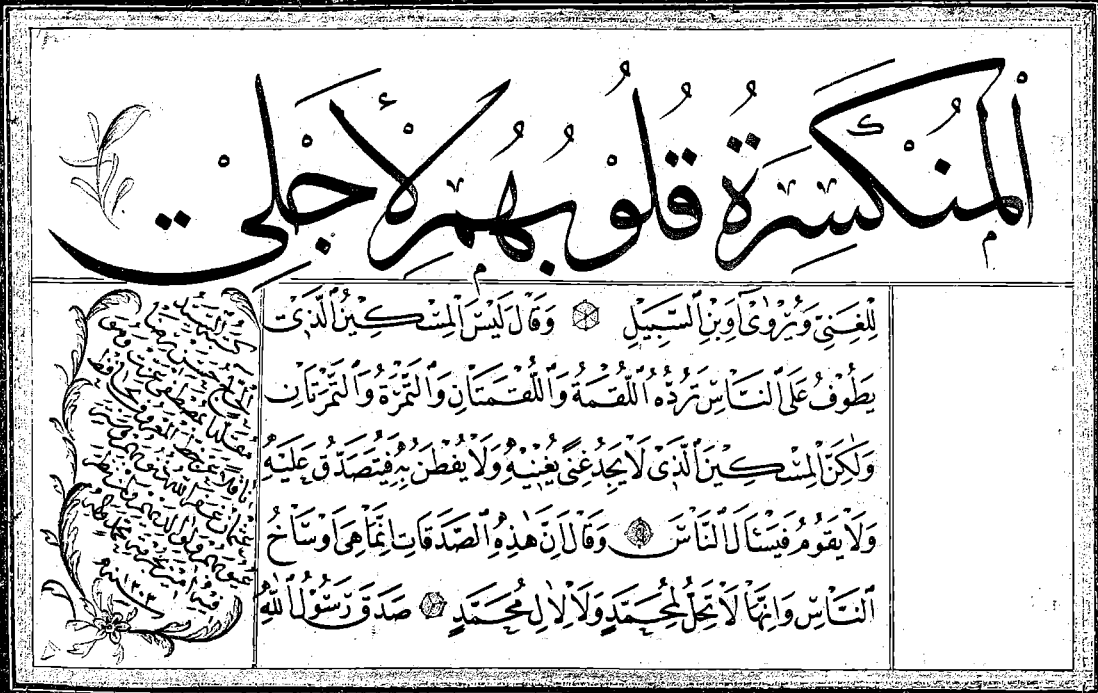 اَلْمُنْكَسِرَةُ قُلُوبُهُمْ لِأَجْلِي
لِلْغَنِيِّ وَيُرْوٰى اَوِ بْنِ السَّبِيلِ وَقَالَ لَيْسَ الْمِسْكِينُ الَّذِي
يَطُوفُ عَلَى النَّاسِ تَرُدُّهُ اللُّقْمَةُ وَاللُّقْمَتَانِ وَالتَّمْرَةُ وَالتَّمْرَتَانِ
وَلٰكِنَّ الْمِسْكِينَ الَّذِي لَا يَجِدُ غِنًى يُغْنِيهِ وَلَا يُفْطَنُ بِهِ فَيُتَصَدَّقُ عَلَيْهِ
وَلَا يَقُومُ فَيَسْئَالَ النَّاسَ وَقَالَ اِنَّ هٰذِهِ الصَّدَقَاتِ اِنَّمَا هِيَ اَوْسَاخُ
النَّاسِ وَاِنَّهَا لَا تَحِلُّ لِمُحَمَّدٍ وَلَا لِاٰلِ مُحَمَّدٍ صَدَقَ رَسُولُ اللّٰهِ
الحاج حسن
مقلدا
ناقلا عن خط المعروف
عثمان غفر الله ذنوبه
١٢٠٣